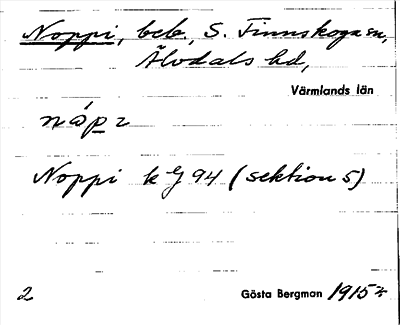 Noppi, beb., S. Finnskoga sn,
Älvdals hd,
Värmlands län
Noppi k 94 (sektion 5)
2 Gösta Bergman 1915